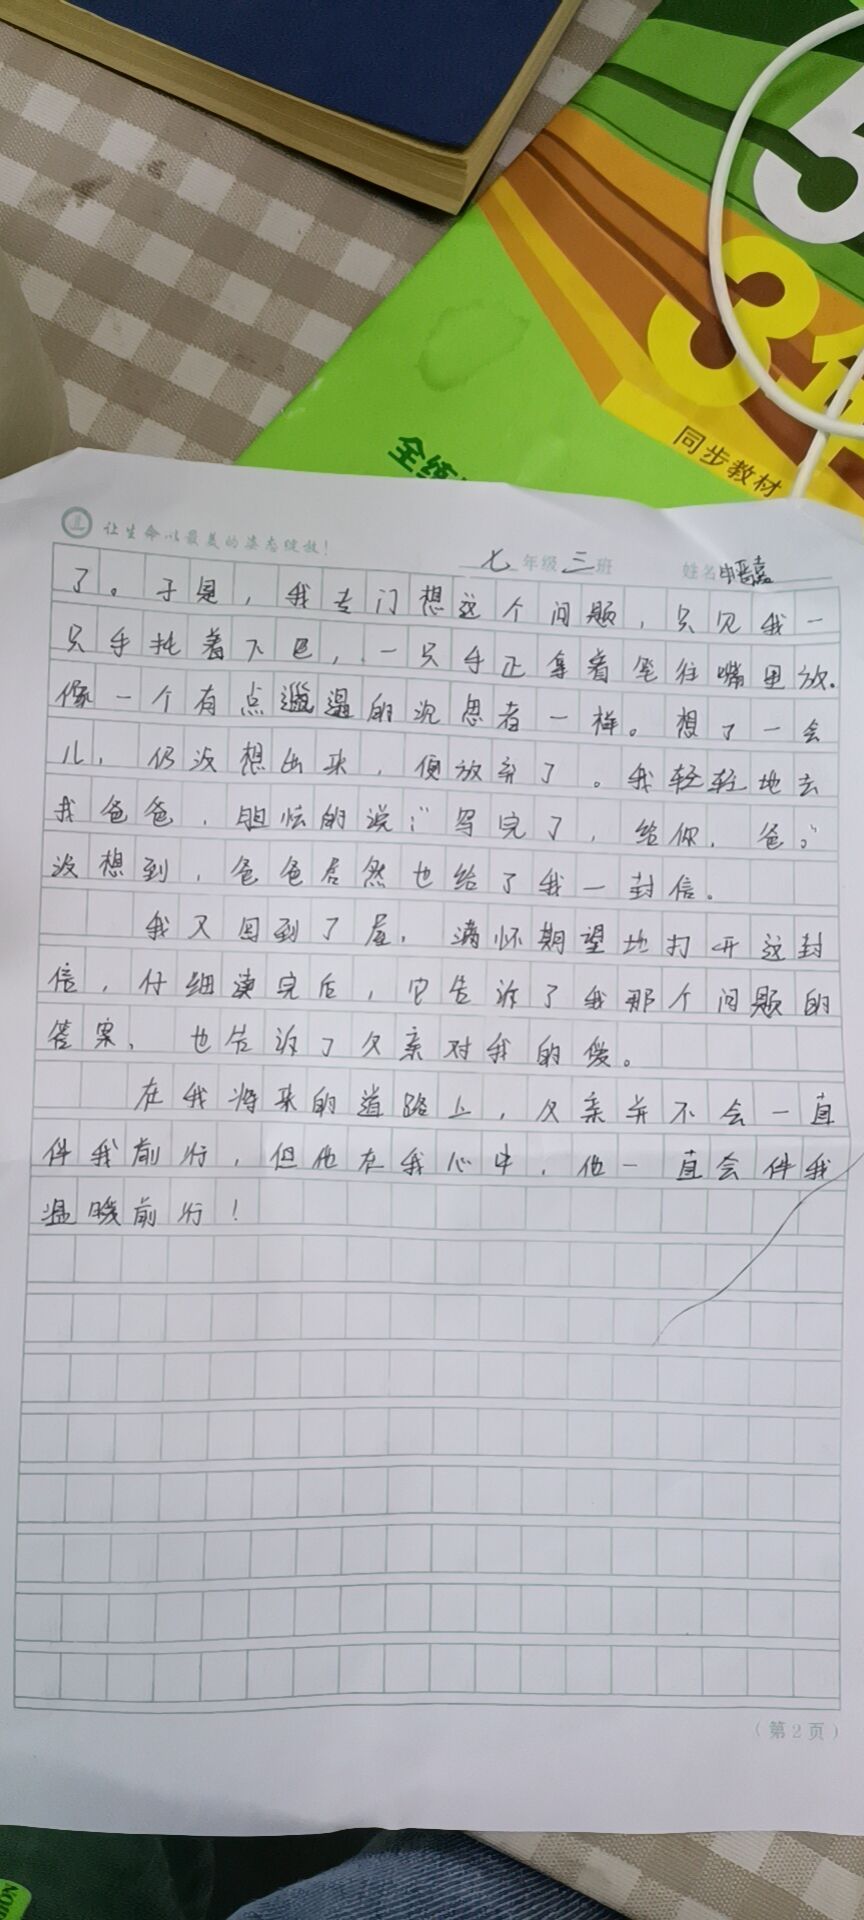 5
3
全练
同步教材
让生命以最美的姿态绽放！
七 年级 三 班 姓名
了。于是，我专门想这个问题，只见我一
只手托着下巴，一只手正拿着笔往嘴里放.
像一个有点邋遢的沉思者一样。想了一会
儿，仍没想出来，便放弃了。我轻轻地去
我爸爸，胆怯的说:“写完了，给你，爸。”
没想到，爸爸居然也给了我一封信。
我又回到了屋，满怀期望地打开这封
信，仔细读完后，它告诉了我那个问题的
答案，也告诉了父亲对我的爱。
在我将来的道路上，父亲并不会一直
伴我前行，但他在我心中，他一直会伴我
温暖前行！
（第2页）